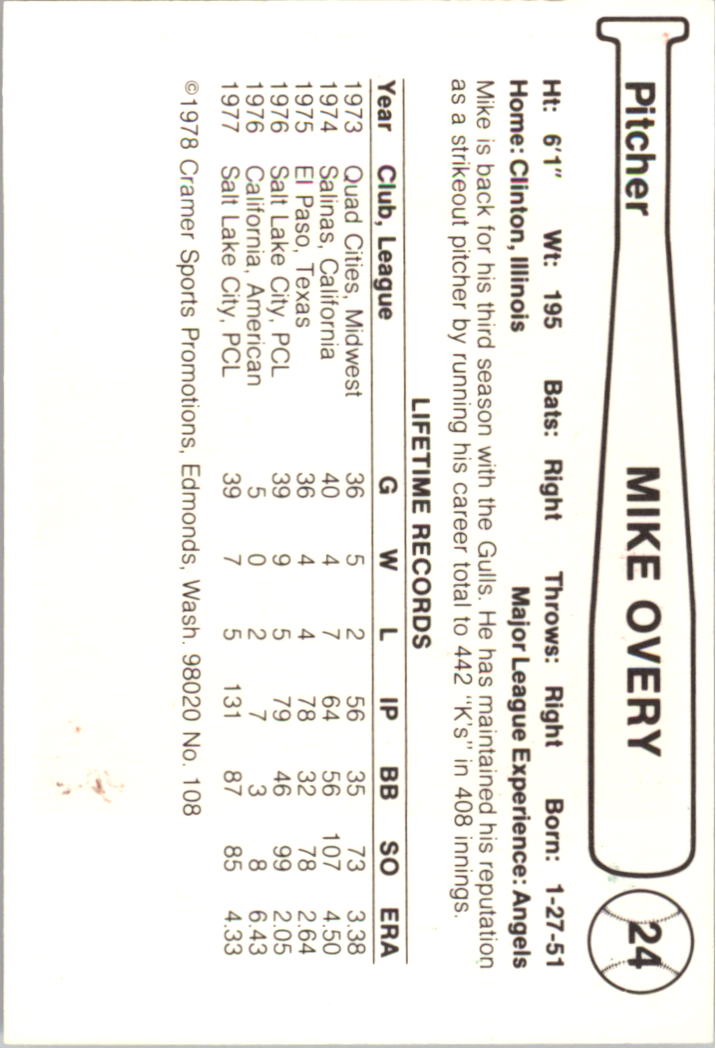 Pitcher MIKE OVERY 24
Ht: 6'1" Wt: 195 Bats: Right Throws: Right Born: 1-27-51
Home: Clinton, Illinois Major League Experience: Angels
Mike is back for his third season with the Gulls. He has maintained his reputation
as a strikeout pitcher by running his career total to 442 "K's" in 408 innings.
LIFETIME RECORDS
Year Club, League G W L IP BB SO ERA
1973 Quad Cities, Midwest 36 5 2 56 35 73 3.38
1974 Salinas, California 40 4 7 64 56 107 4.50
1975 El Paso, Texas 36 4 4 78 32 78 2.64
1976 Salt Lake City, PCL 39 9 5 79 46 99 2.05
1976 California, American 5 0 2 7 3 8 6.43
1977 Salt Lake City, PCL 39 7 5 131 87 85 4.33
©1978 Cramer Sports Promotions, Edmonds, Wash. 98020 No. 108